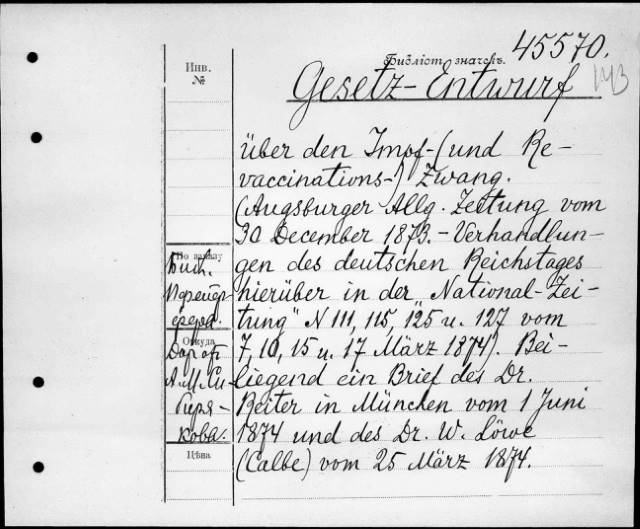 45570.
Инв.
№
Библіот. значекъ.
143
Gesetz-Entwurf
über den Impf-(und Re-
vaccinations-) Zwang.
(Augsburger Allg. Zeitung vom
30 December 1873.- Verhandlun-
gen des deutschen Reichstages
hierüber in der „National-Zei-
tung" N 111, 115, 125 u. 127 vom
7, 10, 15 u. 17 März 1874). Bei-
liegend ein Brief des Dr.
Reiter in München vom 1 Juni
1874 und des Dr. W. Löwe
(Calbe) vom 25 März 1874.
По заказу
Откуда
Даръ отъ
кова.
Цѣна